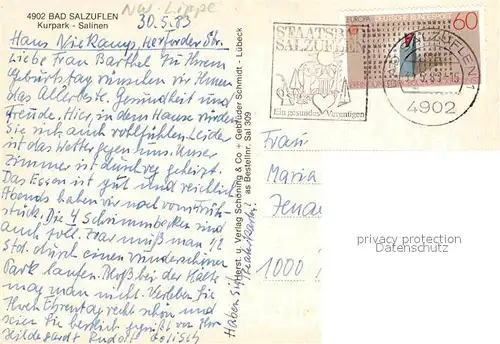 4902 BAD SALZUFLEN
Kurpark - Salinen
NW. Lippe
30.5.83
Haus Niekamp, Herforder Str.
Liebe Frau Barthel Zu Ihrem
Geburtstag wünschen wir Ihnen
das Allerbeste. Gesundheit und
Freude. Hier, in dem Hause würden
Sie sich auch wohlfühlen. Leider
ist das Wetter gegen uns. Unser
Zimmer ist durchweg geheizt.
Das Essen ist gut und reichlich
Abends haben wir noch vom Früh-
stück. Die 4 Schwimmbecken sind
auch toll. Zwar muß man 1/2
Std. durch einen wunderschönen
Park laufen. Bloß bei der Kälte
mag man nicht. Verleben Sie
Ihren Ehrentag recht schön und
seien Sie herzlich gegrüßt von Ihr.
Hildegardt Rudolf
Haben Sie
Herst. u. Verlag Schöning & Co + Gebrüder Schmidt - Lübeck
as Bestellnr. Sal 309
STAATSB
SALZUFLEN
Ein gesundes Vergnügen
EUROPA DEUTSCHE BUNDES
60
SALZUFLEN 1
4902
Frau
Maria
1000
privacy protection
watermark